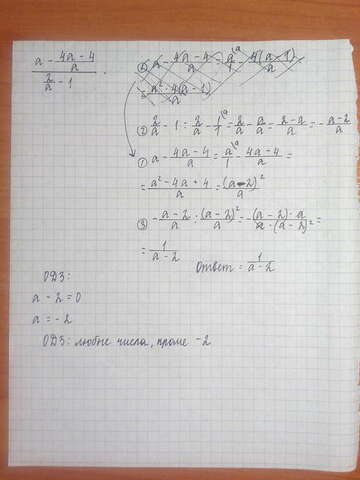 (a - (4a-4)/a) / (2/a - 1)
② 2/a - 1 = 2/a - 1/1 = 2/a - a/a = 2-a/a = - a-2/a
① a - 4a-4/a = a/1 - 4a-4/a =
= a²-4a+4/a = (a-2)²/a
③ - a-2/a : (a-2)²/a = - (a-2)·a/a·(a-2)² =
= 1/a-2
Ответ = 1/a-2
ОДЗ:
a - 2 = 0
a = -2
ОДЗ: любые числа, кроме -2